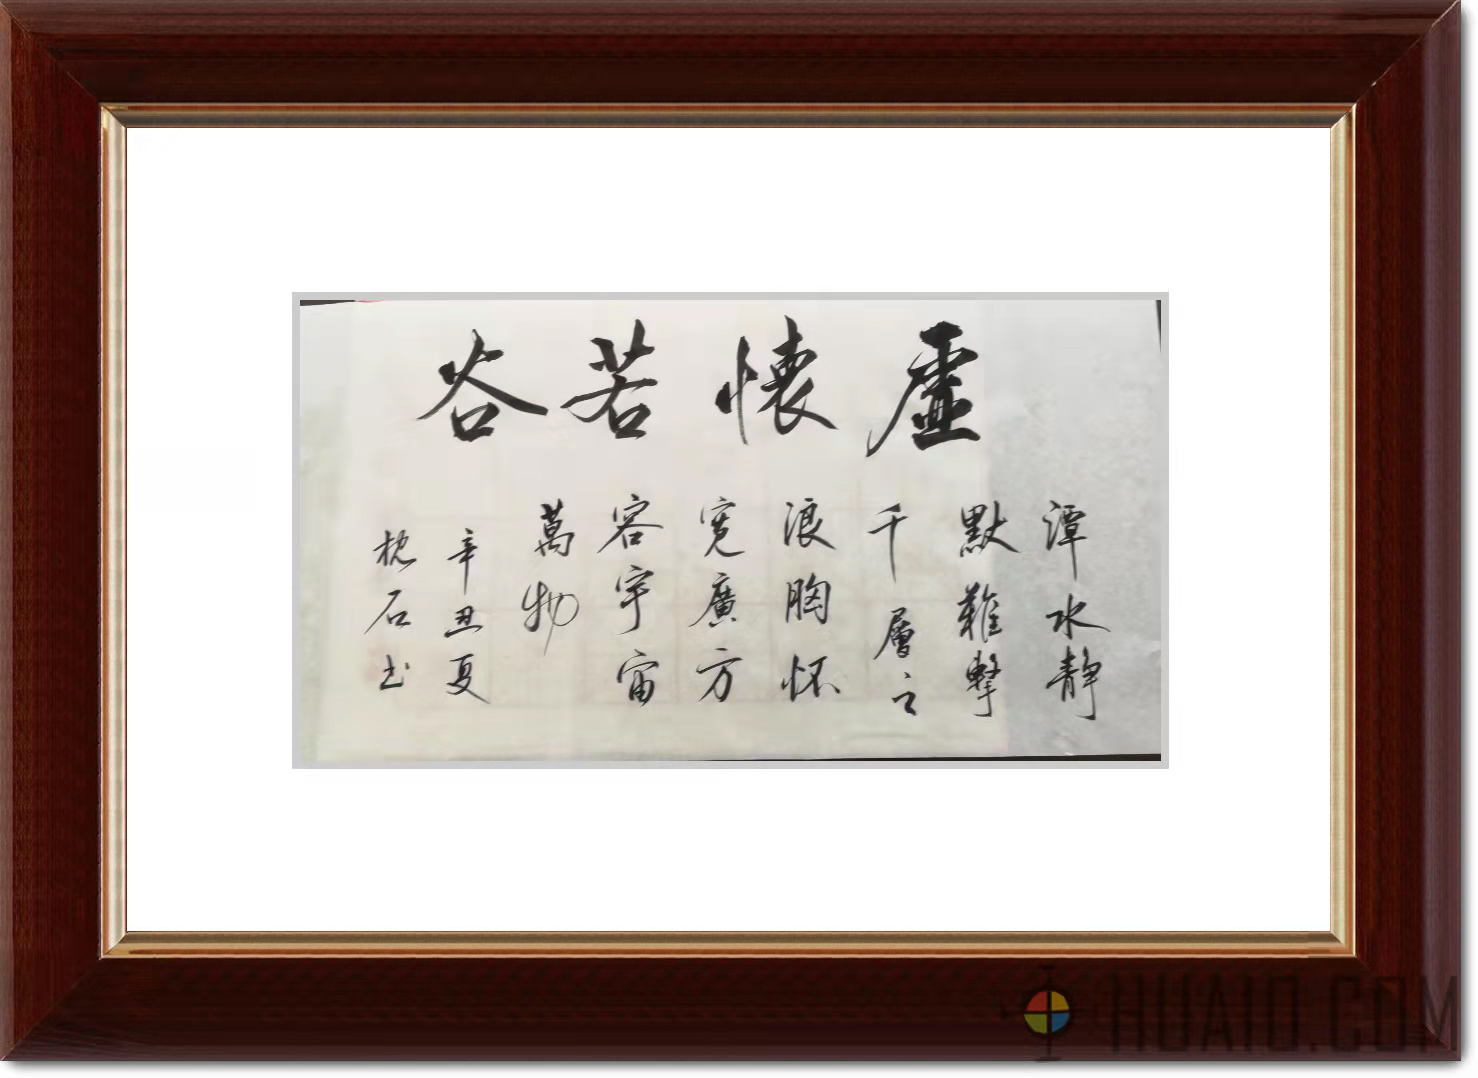 虛懷若谷
潭水静
默難擊
千層之
浪胸怀
寬廣方
容宇宙
萬物
辛丑夏
枕石书
HUAIO.COM